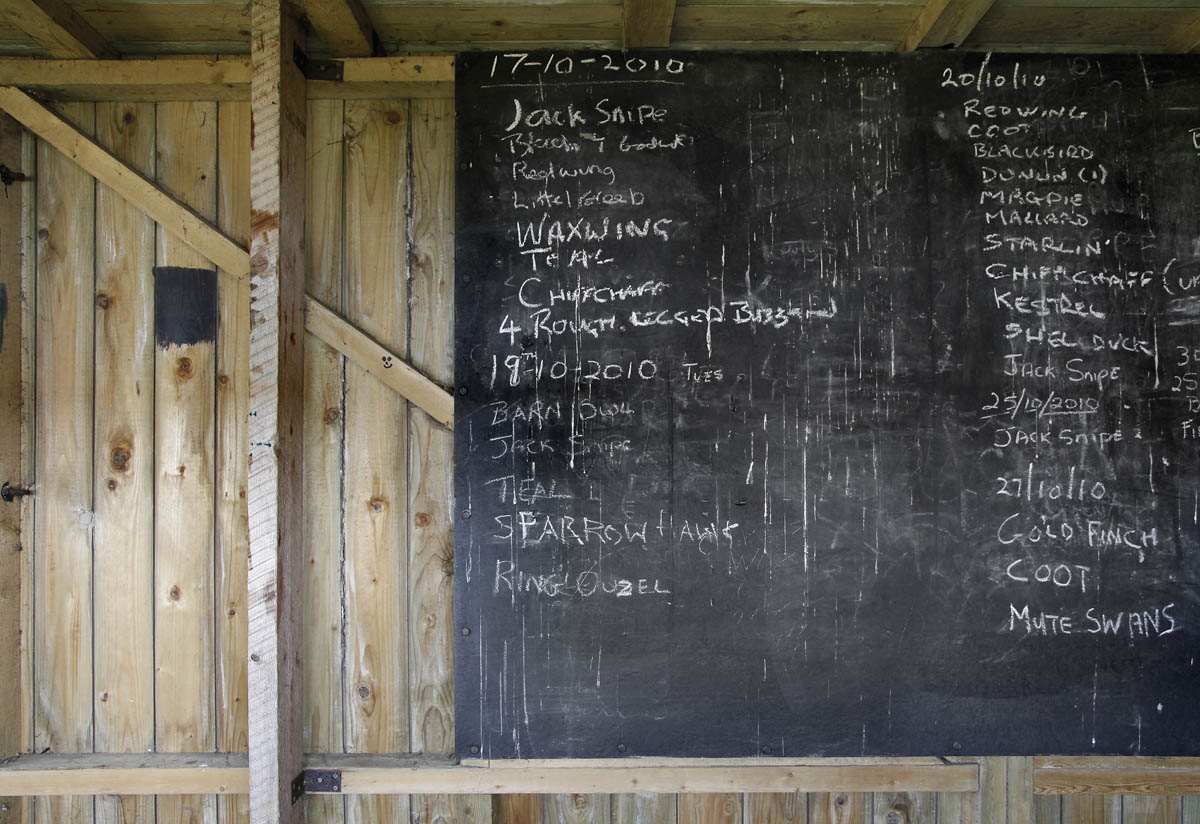 17-10-2010
Jack Snipe
Black T Godwit
Redwing
Littel Greeb
WAXWING
TEAL
CHIFFCHAFF
4 ROUGH LEGGED BUZZARD
19th-10-2010 TUES
BARN OWL
JACK SNIPE
TEAL
SPARROW HAWK
RING OUZEL
20/10/10
REDWING
COOT
BLACKBIRD
DUNUN (1)
MAGPIE
MALLARD
STARLIN'
CHIFFCHAFF
KESTREL
SHEL DUCK
JACK SNIPE
25/10/2010
JACK SNIPE
27/10/10
GOLD FINCH
COOT
MUTE SWANS